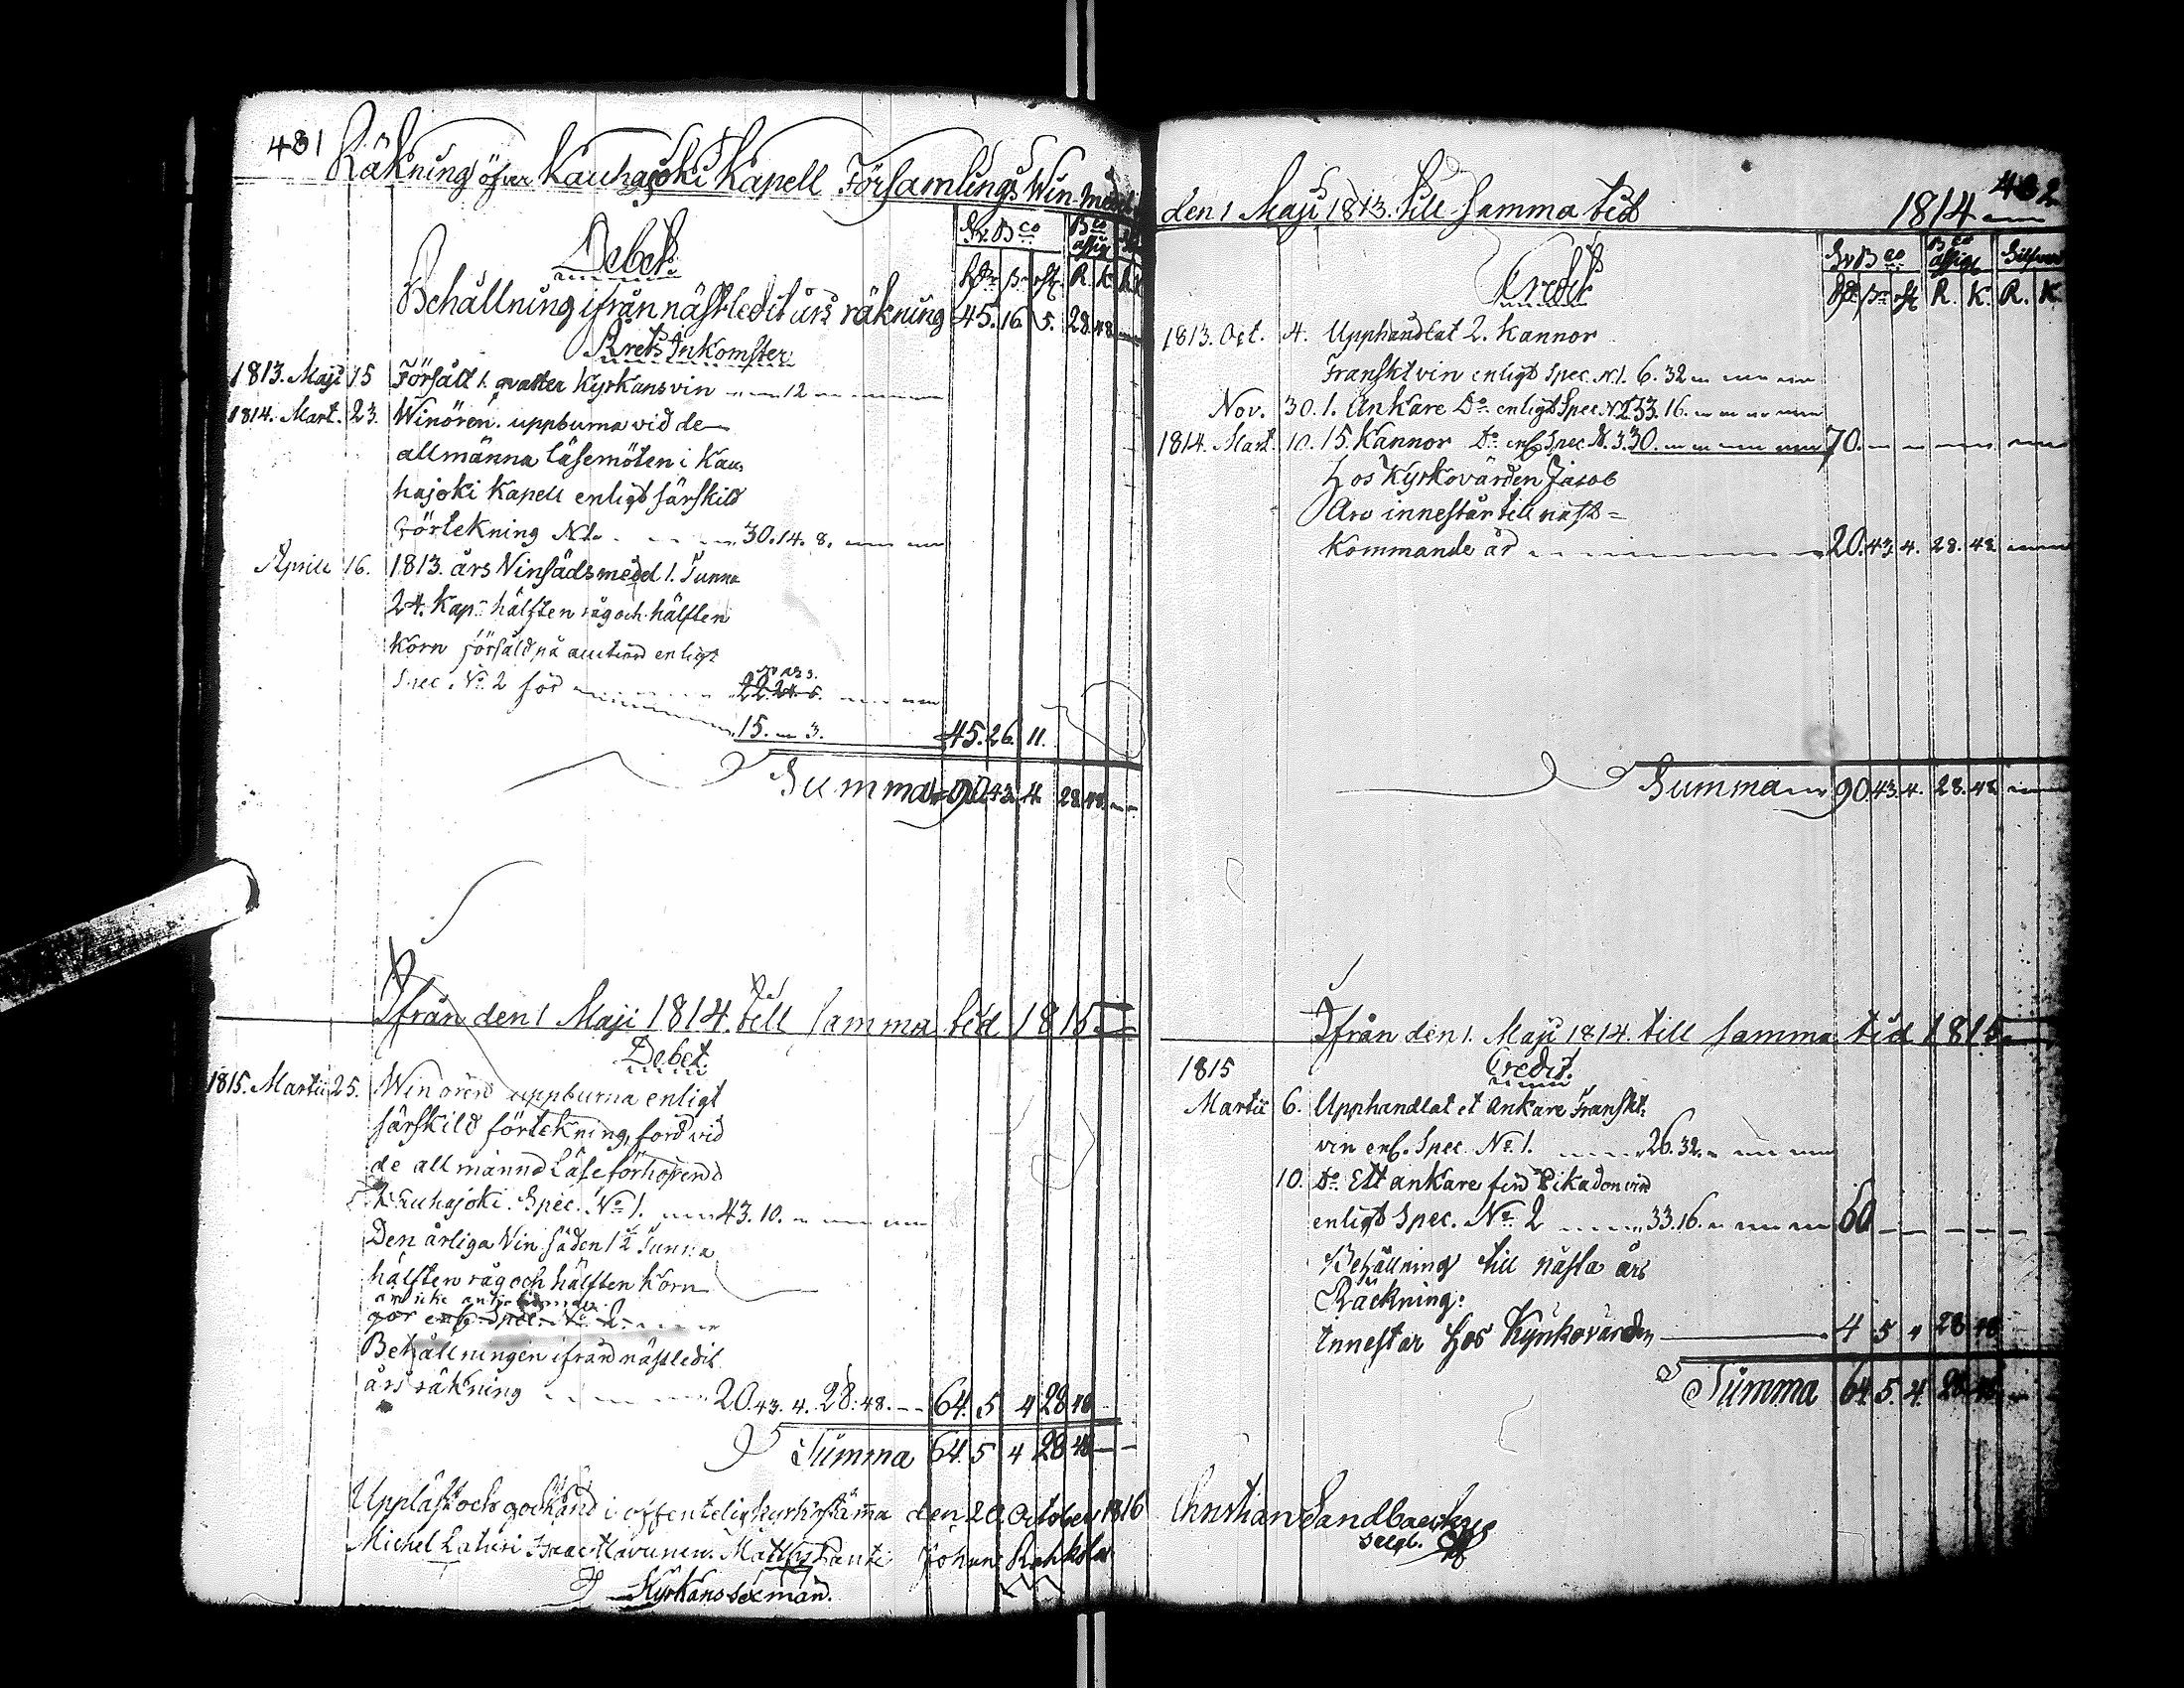 481
Räkning öfver Kauhajoki Kapell Församlings Win-medel
Debet.
Sv. Bco Bco assig.
Rdr ß rst. R. K. R.
Behållning ifrån nästledit års räkning 45. 16. 5. 28. 48.
Årets Inkomster
1813. Maji 15 Försält 1. qvarter Kyrkans vin 12
1814. Mart. 23. Winören uppburna vid de
allmänna läsemöten i Kau-
hajoki Kapell enligt särskild
förtekning N1. 30. 14. 8.
Aprill 16. 1813. års Vinsäds medel 1. Tunna
24. Kap. hälften råg och hälften
Korn försåld på auction enligt
Spec. No. 2 för 22. 24.
15. 3. 45. 26. 11.
Summa 90. 43. 4. 28. 48.
Ifrån den 1 Maji 1814. till samma tid 1815.
Debet.
1815. Martii 25. Win ören uppburna enligt
särskild förtekning, förd vid
de allmänna Läseförhören i
Kauhajoki. Spec. No. 1. 43. 10.
Den årliga Vin säden 1 1/2 Tunna
hälften råg och hälften Korn
gör enl. Spec. No. 2.
Behållningen ifrån nästledit
års räkning 20. 43. 4. 28. 48. 64. 5 4 28 48
Summa 64. 5 4 28 48
Uppläst och godkänd i offentelig kyrkostämma den 20 October 1816
Michel Isaac Matts Johan
Kyrkans sexmän.
482
den 1 Maji 1813. till samma tid 1814
Credit
Sv. Bco Bco assig. Silfver
Rdr ß rst. R. K. R. K.
1813. Oct. 4. Upphandlat 2. Kannor
Franskt vin enligt Spec. N.1. 6. 32
Nov. 30. 1. Ankare Do. enligt Spec N2. 33. 16.
1814. Mart. 10. 15. Kannor Do. enl. Spec. N. 3. 30. 70.
Hos Kyrkovärden Jacob
Aro innestår till näst=
kommande år 20. 43. 4. 28. 48
Summa 90. 43. 4. 28. 48
Ifrån den 1. Maji 1814. till samma tid 1815.
1815 Credit.
Martii 6. Upphandlat et ankare Franskt.
vin enl. Spec. No. 1. 26. 32.
10. Do. Ett ankare Pikadon vin
enligt Spec. No. 2 33. 16. 60
Behållning till nästa års
Räckning:
innestår hos Kyrkovärden 4 5 4 28 48
Summa 64. 5. 4. 28 48
Christian